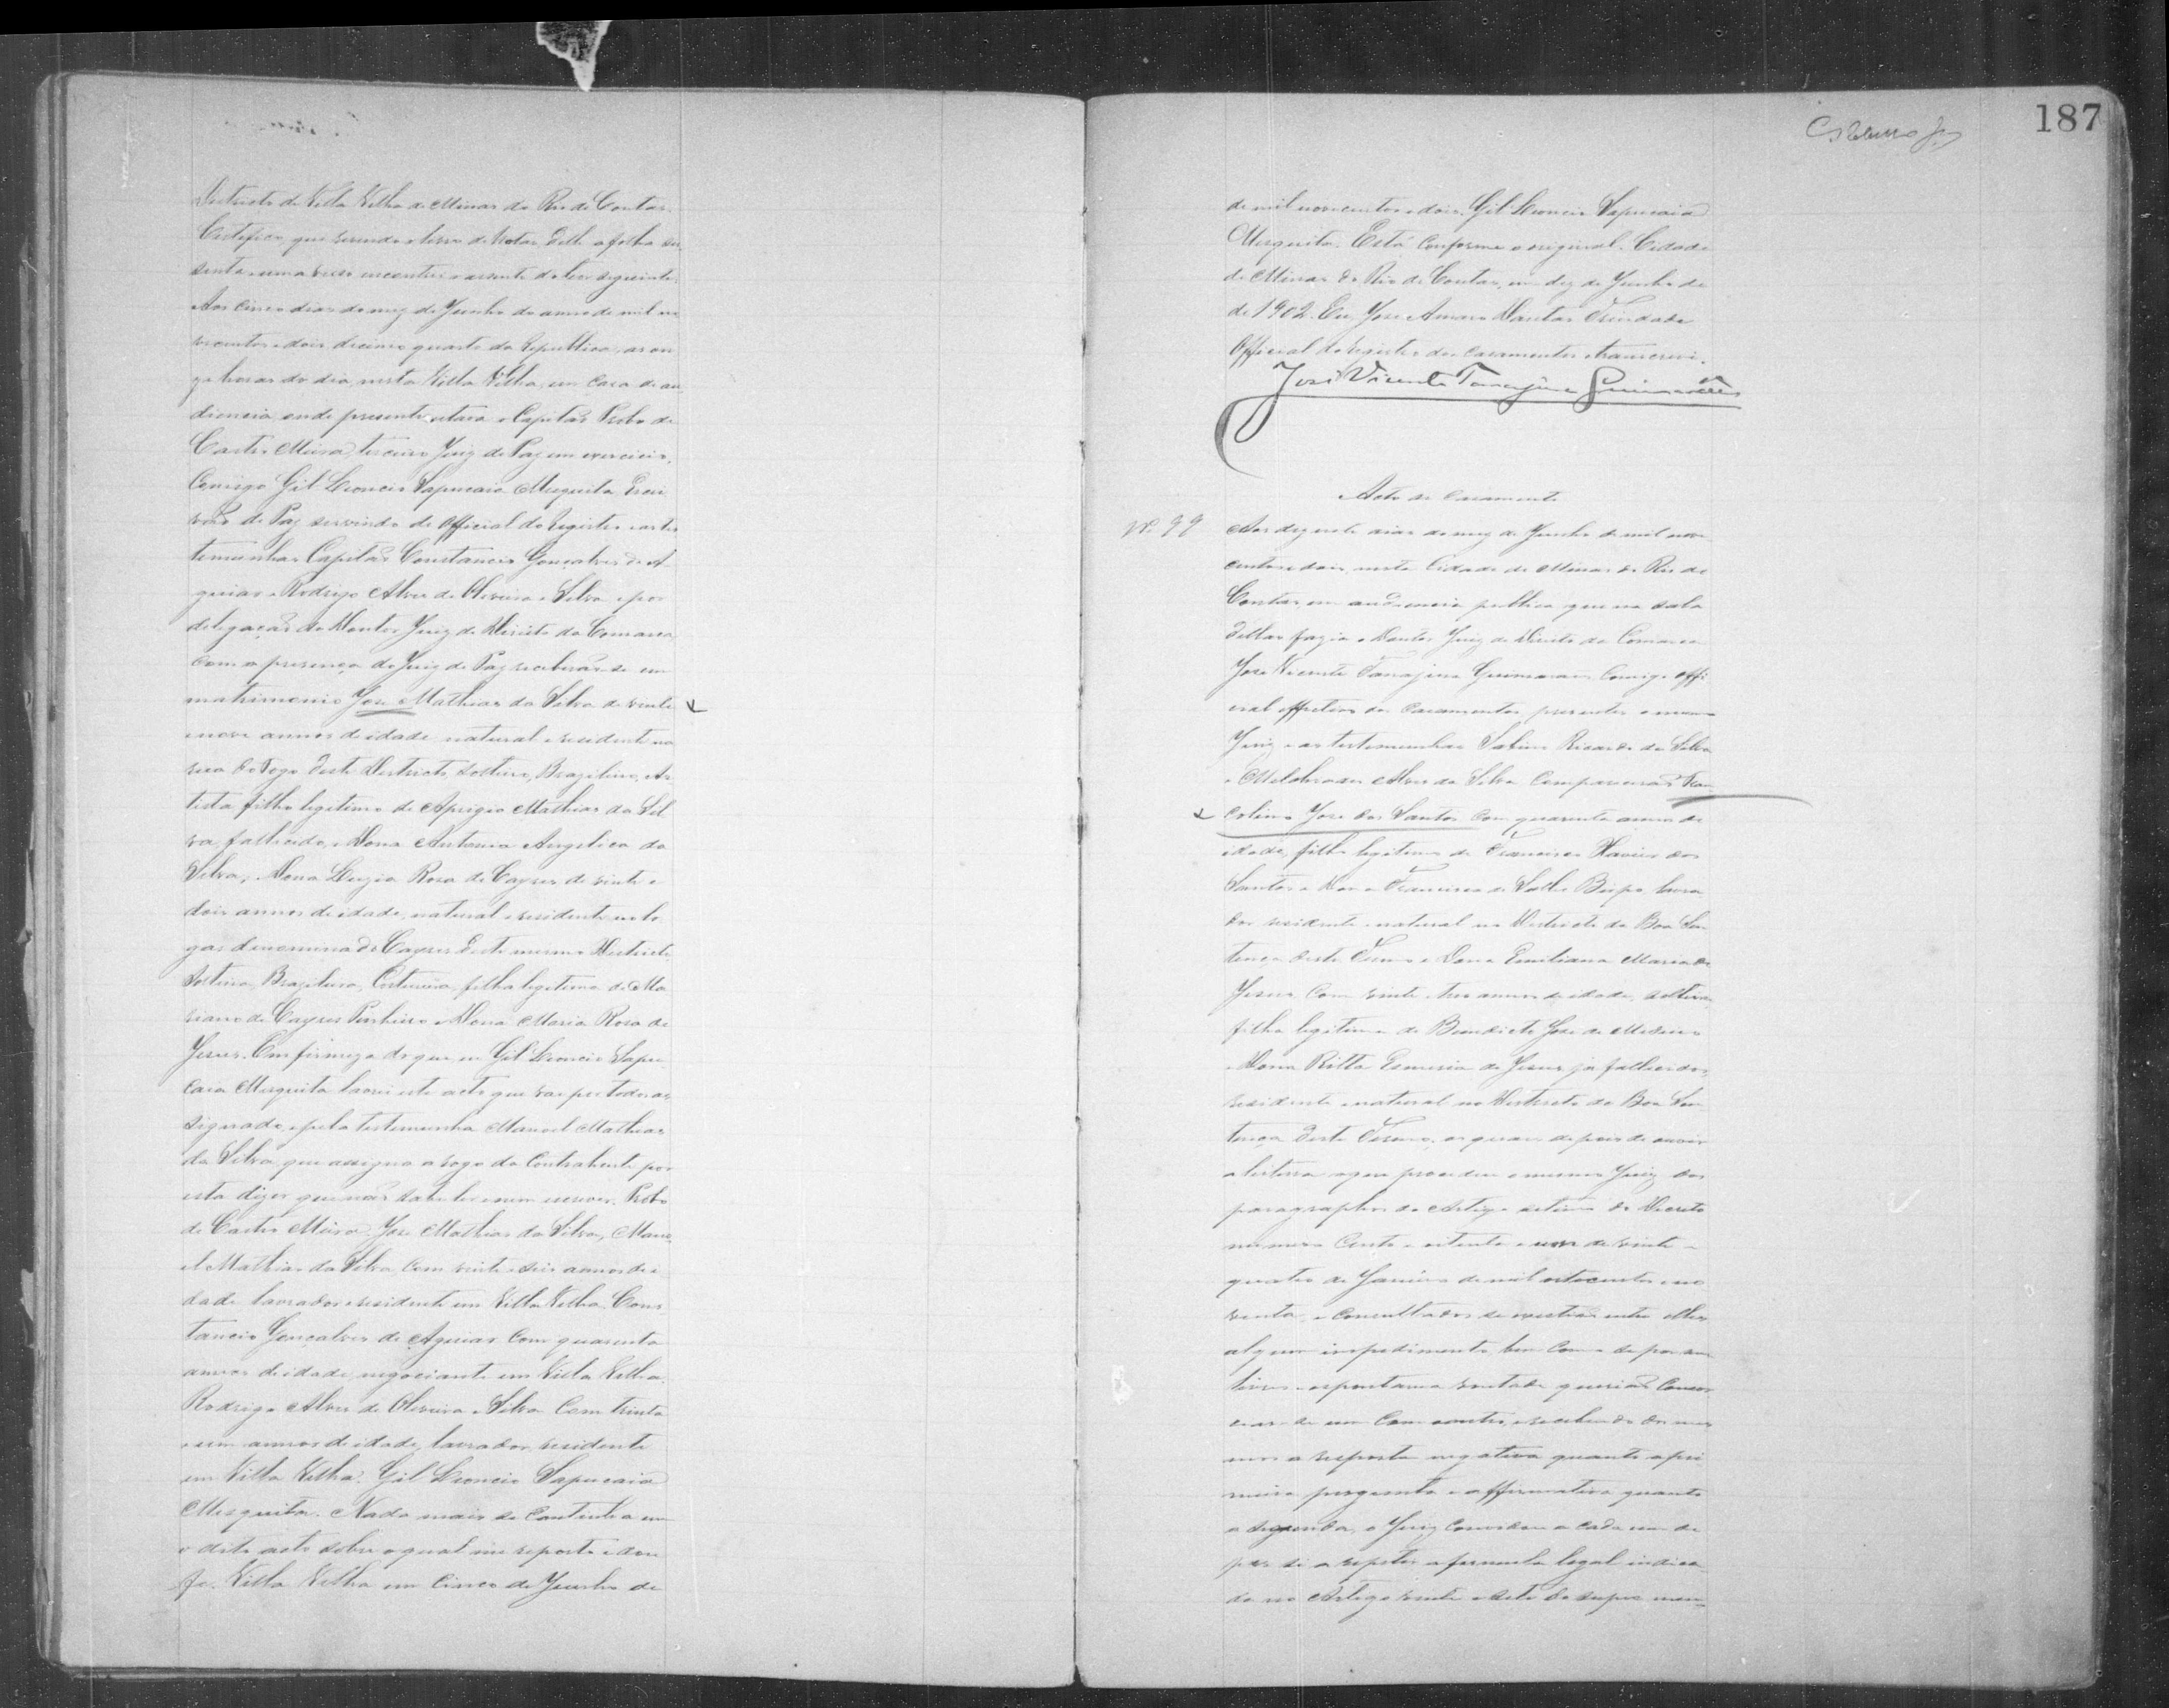 Districto de Villa Velha de Minas do Rio de Contas.
Certifico que revendo o livro de Notas delle a folha ses
senta e uma verso encontrei o assento do teor seguinte:
Aos cinco dias do mez de Junho do anno de mil no
vecentos e dois, decimo quarto da Republica, as on
ze horas do dia, nesta Villa Velha, em casa de au
diencia, onde presente estava o Capitão Probo de
Castro Meira, terceiro Juiz de Paz em exercicio,
Comigo Gil Leoncio Sapucaia Mesquita Escri
vão de Paz servindo de Official do Registro e as tes
temunhas Capitão Constancio Gonçalves de A
guiar e Rodrigo Alves de Oliveira e Silva e por
delegação do Doutor Juiz de Direito da Comarca
com a presença do Juiz de Paz receberão-se em
matrimonio José Mathias da Silva de vinte
e nove annos de idade natural e residente na
deste Districto, solteiro, Brazileiro, Ar
tista filho legitimo de Aprigio Mathias da Sil
va, fallecido, e Dona Antonia Angelica da
Silva; Dona Luzia Rosa de Cayres de vinte e
dois annos de idade, natural e residente no lo
gar denominado Cayres deste mesmo Districto
solteira, Brazileira, Costureira, filha legitima de Ma
riano de Cayres Pinheiro e Dona Maria Rosa de
Jesus. Em firmeza do que eu Gil Leoncio Sapu
caia Mesquita lavrei este acto que vae por todos as
signado, e pela testemunha Manoel Mathias
da Silva que assigna a rogo da Contrahente por
esta dizer que não sabe ler e nem escrever. Probo
de Castro Meira. José Mathias da Silva, Mano
el Mathias da Silva, com vinte e seis annos de i
dade lavrador e residente em Villa Velha. Cons
tancio Gonçalves de Aguiar com quarenta
annos de idade, negociante em Villa Velha.
Rodrigo Alves de Oliveira e Silva com trinta
e um annos de idade, lavrador, residente
em Villa Velha. Gil Leoncio Sapucaia
Mesquita. Nada mais se continha em
o dito acto sobre o qual me reporto e dou
fé. Villa Velha em cinco de Junho de
187
de mil novecentos e dois. Gil Leoncio Sapucaia
Mesquita. Está conforme o original. Cidade
de Minas do Rio de Contas, em dez de Junho de
de 1902. Eu, José Amaro Dantas Trindade
Official do registro dos casamentos o transcrevi.
José Vicente Tanajura Guimarães
Acto de Casamento
Nº 99 Aos dezesete dias do mez de Junho de mil nove
centos e dois, nesta Cidade de Minas do Rio de
Contas, em audiencia publica que na sala
dellas fazia o Doutor Juiz de Direito da Comarca
José Vicente Tanajura Guimaraes Comigo offi
cial effectivo dos casamentos, presentes o mesmo
Juiz e as testemunhas Sabino Ricardo da Silva
e Melchiades Alves da Silva compareceram Tran
colino José dos Santos com quarenta annos de
idade, filho legitimo de Francisco Xavier dos
Santos e Dona Francisca de Salles Bispo, lavra
dor residente e natural no Districto da Boa Sen
tença deste Termo e Dona Emiliana Maria de
Jesus com vinte e tres annos de idade, solteira,
filha legitima de Benedicto José de
e Dona Ritta de Jesus, já fallecidos,
residente e natural no Districto da Boa Sen
tença deste Termo; os quaes depois de ouvir
a leitura a que procedeu o mesmo Juiz dos
paragraphos do Artigo setimo do Decreto
numero cento e oitenta e um de vinte e
quatro de Janeiro de mil oitocentos e no
venta, e consultados se existia entre elles
algum impedimento bem como se por sua
livre e espontanea vontade queriam consor
ciar-se um com outro, e recebendo dos mes
mos a resposta negativa quanto a pri
meira pergunta e affirmativa quanto
a segunda, o Juiz convidou a cada um de
per si a repetir a formula legal indica
da no Artigo vinte e sete do supra men